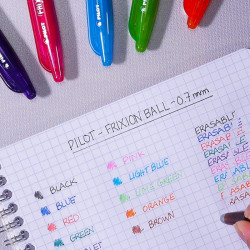 PILOT - FRIXION BALL - 0.7mm
BLACK
BLUE
RED
GREEN
PINK
LIGHT BLUE
LIME GREEN
ORANGE
BROWN
ERASABLE
ERASABLE
ERASABLE
ERASABLE
ERASABLE
ERASABLE